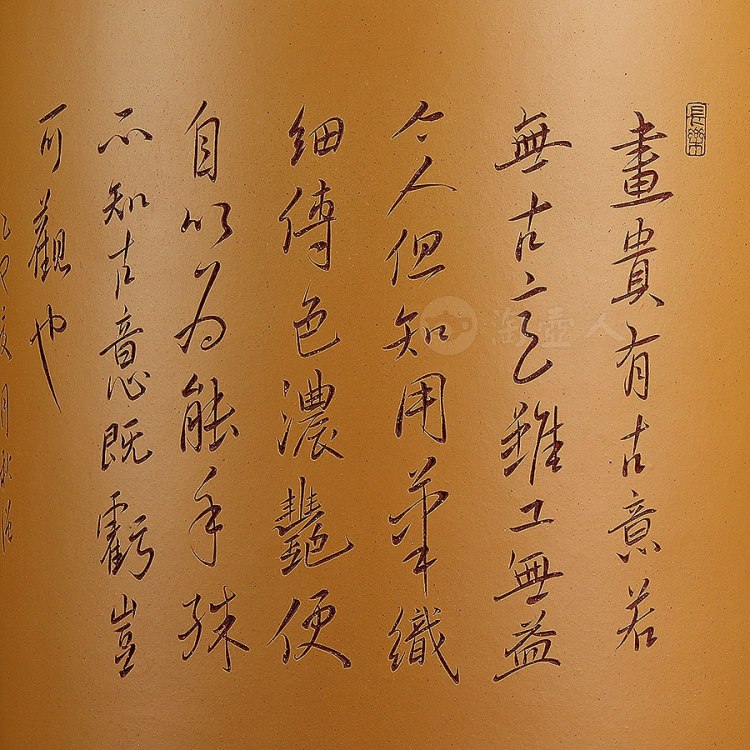 長樂
畫貴有古意若
無古意雖工無益
今人但知用筆纖
細傅色濃艷便
自以为能手殊
不知古意既虧豈
可觀也
乙巳夏月
淘壺人